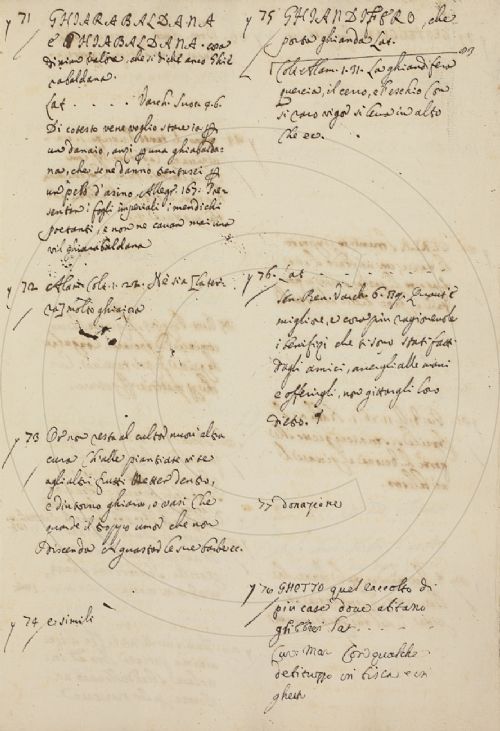 y 71 GHIARABALDANA
è GHIABALDANA. cosa
di niun valore, che si dice anco Ghie
rabaldana.
Lat . . . . Varch. Suoc. 4. 6.
Di cotesto ve ne voglio stare io p
un danaio, anzi p una ghiabalda-
na, che se ne danno trentasei p
un pelo d'asino. Allegr. 167.
sentir i fogli imperiali i mendichi
poetanti, e non ne cavar mai una
vil ghiarabaldana
y 72 Alam. Colt. 1. Né sia
molto ghiaiosa
y 73 Or non resta al cultor nuovi altra
cura
agli altri frutti metter dentro,
e d'intorno ghiare, o vasi che
guarde il troppo umor che non
discenda
y 74 e simili
y 75 GHIANDIFERO, che
porta ghianda Lat.
Colt. Alam. 1. 31. La ghiandifera
quercia, il cerro, e l'eschio Con
sì raro vigor si leva in alto
Che ec.
y 76. Lat . . . .
Sen. Ben. Varch. 6. Quant'è
migliore, e cosa più ragionevole
i benifizi che ti sono stati fatti
dagli amici, avergli alle mani
e offerirgli, non gittargli loro
dietro.
77 donazione
y 78 GHETTO quel raccolto di
più case dove abitano
gli Ebrei Lat. . . .
Car. Mat. Con qualche
in bisca e in